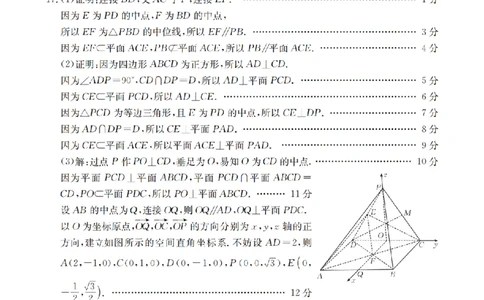 因为E为PD的中点,F为BD的中点,
所以EF为△PBD的中位线,所以EF∥PB. 3分
因为EF⊂平面ACE,PB⊄平面ACE,所以PB∥平面ACE. 4分
(2)证明:因为四边形ABCD为正方形,所以AD⊥CD.
因为∠ADP=90°,CD∩DP=D,所以AD⊥平面PCD. 5分
因为CE⊂平面PCD,所以AD⊥CE. 6分
因为△PCD为等边三角形,且E为PD的中点,所以CE⊥DP. 7分
因为AD∩DP=D,所以CE⊥平面PAD. 8分
因为CE⊂平面ACE,所以平面ACE⊥平面PAD. 9分
(3)解:过点P作PO⊥CD,垂足为O,易知O为CD的中点. 10分
因为平面PCD⊥平面ABCD,平面PCD∩平面ABCD=
CD,PO⊂平面PDC,所以PO⊥平面ABCD. 11分
设AB的中点为Q,连接OQ,则OQ∥AD,OQ⊥平面PDC.
以O为坐标原点,OQ,OC,OP的方向分别为x,y,z轴的正
方向,建立如图所示的空间直角坐标系,不妨设AD=2,则
A(2,-1,0),C(0,1,0),D(0,-1,0),P(0,0,√3),E(0,
-1/2,√3/2). 12分
z
P
E
M
D
O
C
y
F
A
Q
B
x